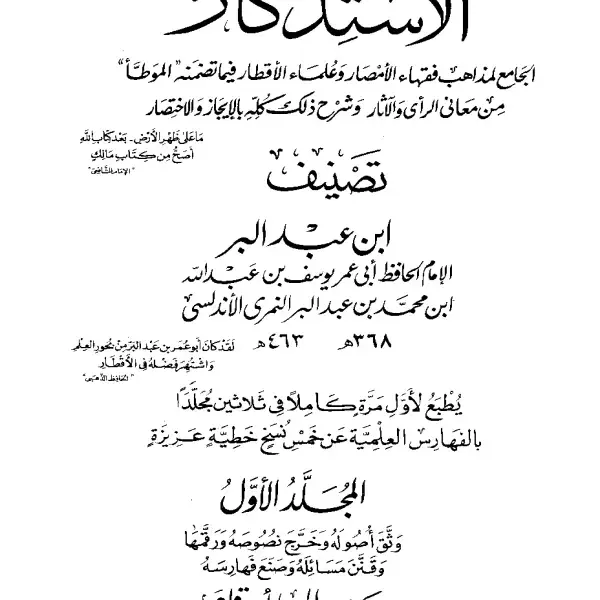 الاستذكار
الجامع لمذاهب فقهاء الأمصار وعلماء الأقطار فيما تضمنه "الموطأ"
من معاني الرأى والآثار وشرح ذلك كله بالإيجاز والاختصار
ما على ظهر الأرض - بعد كتاب الله
أصح من كتاب مالك
"الإمام الشافعى"
تصنيف
ابن عبد البر
الإمام الحافظ أبى عمر يوسف بن عبد الله
ابن محمد بن عبد البر النمرى الأندلسى
٣٦٨ هـ ٤٦٣ هـ
لقد كان أبو عمر بن عبد البر من بحور العلم
واشتهر فضله فى الأقطار
"الحافظ الذهبى"
يُطبَعُ لأوَّلِ مَرَّةٍ كَامِلاً فى ثلاثين مُجلَّدًا
بالفهارس العِلميَّة عَن خَمسِ نُسَخٍ خَطِّيَّةٍ عَزِيزَةٍ
المُجَلَّدُ الأوَّلُ
وَثَّقَ أُصُولَهُ وَخَرَّجَ نصُوصَهُ وَرَقَّمَهَا
وَقَنَّنَ مَسَائِلَهُ وَصَنَعَ فَهَارِسَهُ